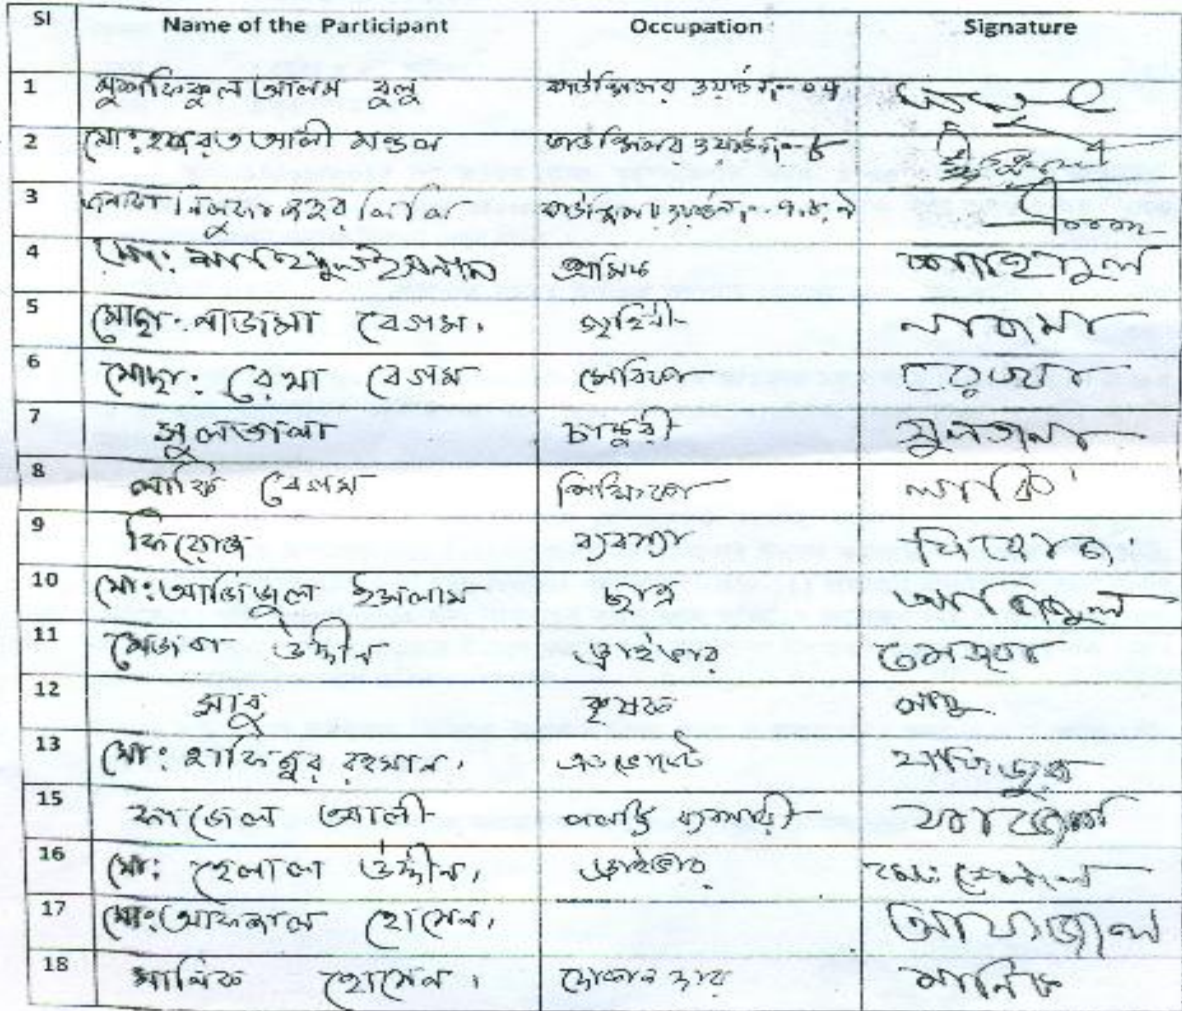 Sl Name of the Participant Occupation Signature
1 মুশফিকুল আলম বুলু কাউন্সিলর ওয়ার্ড নং-০৪
2 মো: হযরত আলী মন্ডল কাউন্সিলর ওয়ার্ড নং-৮
3 কাউন্সিলর ওয়ার্ড নং-৭.৮.৯
4 মো: শহিদুল ইসলাম শহিদুল
5 মোছা: নাজমা বেগম। গৃহিনী নাজমা
6 মোছা: রেখা বেগম সেবিকা
7 সুলতানা চাকুরী সুলতানা
8 লাকি বেগম শিক্ষিকা লাকি
9 ফিরোজ ব্যবসা ফিরোজ
10 মো: আজিজুল ইসলাম ছাত্র আজিজুল
11 উদ্দীন ড্রাইভার
12 সাবু কৃষক সাবু
13 মো: হাফিজুর রহমান। এডভোকেট হাফিজুর
15 ফাজেল আলী ফাজেল
16 মো: হেলাল উদ্দীন। ড্রাইভার মো: হেলাল
17 মো: আফজাল হোসেন। আফজাল
18 মানিক হোসেন। দোকানদার মানিক